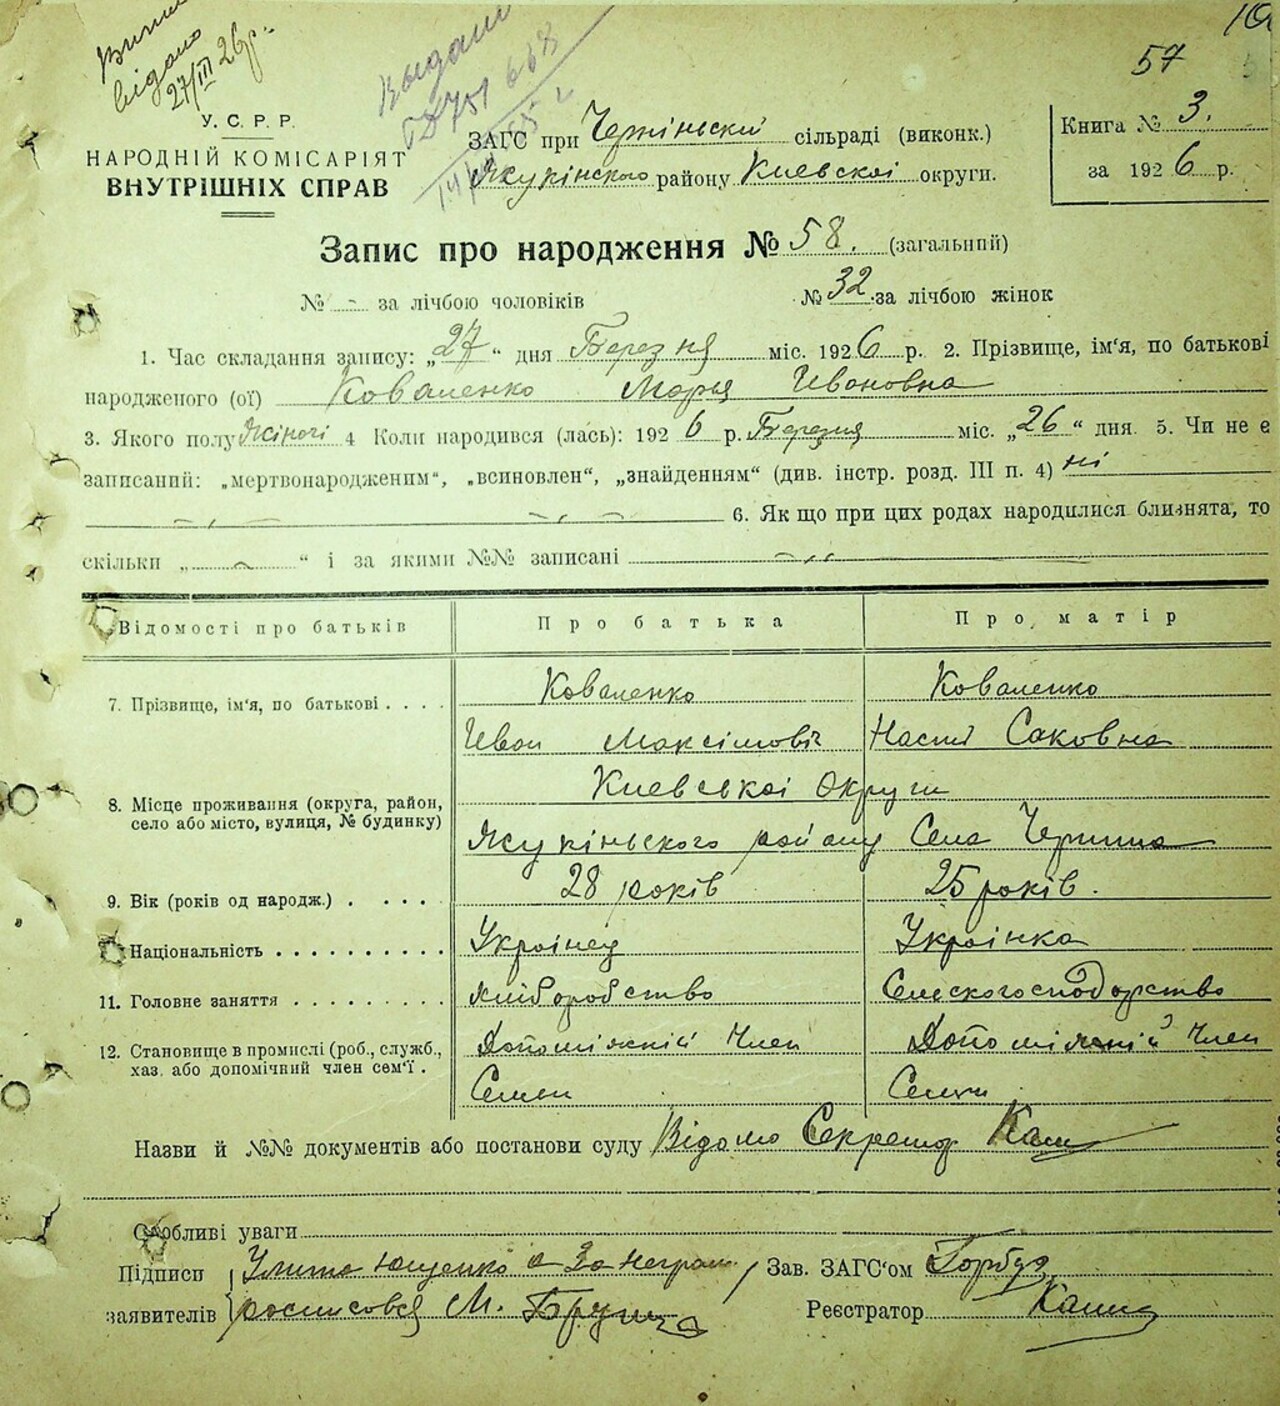 відано
27/III 26р.
У. С. Р. Р.
НАРОДНІЙ КОМІСАРІЯТ
ВНУТРІШНІХ СПРАВ
57
ЗАГС при сільраді (виконк.)
району Киевскоі округи.
Книга № 3.
за 1926 р.
Запис про народження № 58. (загальний)
№ - за лічбою чоловіків № 32 за лічбою жінок
1. Час складання запису: „27“ дня Березня міс. 1926 р. 2. Прізвище, ім‘я, по батькові
народженого (ої) Коваленко Марья Ивановна
3. Якого полу Жіночі 4 Коли народився (лась): 1926 р. Березня міс. „26“ дня. 5. Чи не є
записаний: „мертвонародженим“, „всиновлен“, „знайденням“ (див. інстр. розд. III п. 4) ні
6. Як що при цих родах народилися близнята, то
скільки „ “ і за якими №№ записані
Відомості про батьків Про батька Про матір
7. Прізвище, ім‘я, по батькові . . . . Коваленко Коваленко
Иван Максімовіч Настя Саковна
8. Місце проживання (округа, район,
село або місто, вулиця, № будинку)
Киевськоі Округи
району Села
9. Вік (років од народж.) . . . . 28 років 25 років.
Національність . . . . . . . . . . Украінец Украінка
11. Головне заняття . . . . . . . . . Хліборобство Сельскогосподорство
12. Становище в промислі (роб., служб.,
хаз. або допомічний член сем‘ї .
Допоміжній Член Допоміжній Член
Семьи Семьи
Назви й №№ документів або постанови суду Відомо Секретар
Особливі уваги
Підписи Ющенко а За неграм. Зав. ЗАГС‘ом Горбуз
заявителів росписовся М. Реєстратор